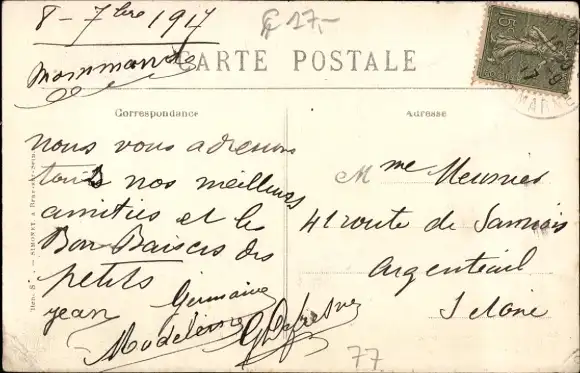 8 - 7bre 1917
₢ 17,-
Mormmand
CARTE POSTALE
15c
MARNE
Correspondance
Adresse
nous vous adressons
tous nos meilleurs
amitiés et les
Bon Baisers des
petits
jean Germaine
Madeleine GDefresne
Mme Meunier
41 route de Sannois
argenteuil
S et Oise
77
SIMONET